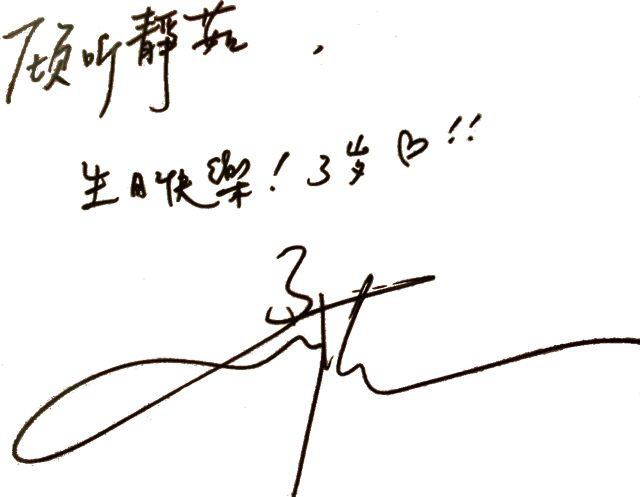 倾听靜茹，
生日快樂！3岁♡!!